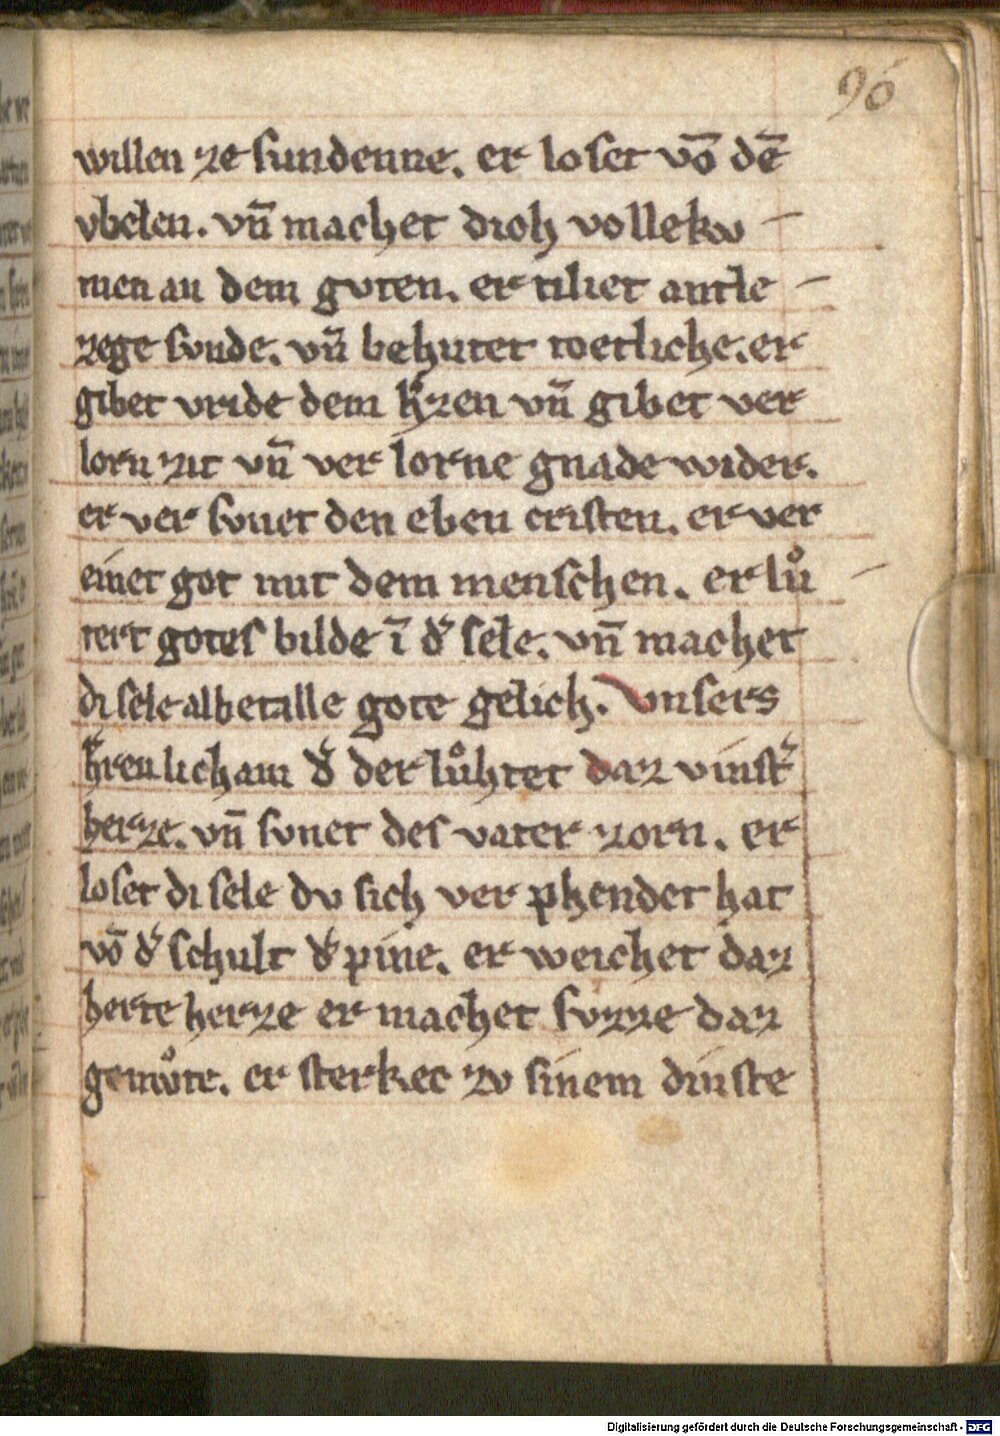 96
willen ze sundenne. er loset vō dē
vbelen. vn̄ machet dich vollekv –
men an dem gvten. er tiliet antle –
zege svnde. vn̄ behutet toetliche. er
gibet vride dem h̓zen vn̄ gibet ver
lorn zit vn̄ ver lorne gnade wider.
er ver svnet den eben cristen. er ver
einet got mit dem menschen. er lvͦ –
tert gotes bilde ī d̓ sele. vn̄ machet
di sele albetalle gote gelich. Vnsers
h̓ren licham d̓ der lvͦhtet daz vinst̓
herze. vn̄ svnet des vater zorn. er
loset di sele dv sich ver phendet hat
vō d̓ schult d̓ pine. er weichet daz
herte herze er machet svzze daz
gemvͦte. er sterket zv sinem dinste
Digitalisierung gefördert durch die Deutsche Forschungsgemeinschaft - DFG